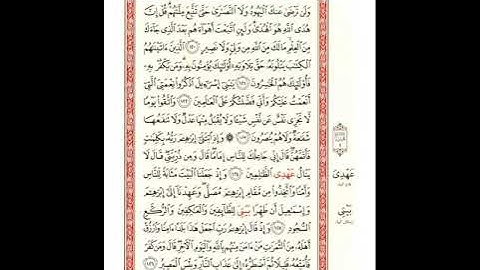 وَلَن تَرْضَىٰ عَنكَ ٱلْيَهُودُ وَلَا ٱلنَّصَٰرَىٰ حَتَّىٰ تَتَّبِعَ مِلَّتَهُمْ قُلْ إِنَّ
هُدَى ٱللَّهِ هُوَ ٱلْهُدَىٰ وَلَئِنِ ٱتَّبَعْتَ أَهْوَآءَهُم بَعْدَ ٱلَّذِى جَآءَكَ
مِنَ ٱلْعِلْمِ مَا لَكَ مِنَ ٱللَّهِ مِن وَلِىٍّ وَلَا نَصِيرٍ ١٢٠ ٱلَّذِينَ ءَاتَيْنَٰهُمُ
ٱلْكِتَٰبَ يَتْلُونَهُۥ حَقَّ تِلَاوَتِهِۦٓ أُو۟لَٰٓئِكَ يُؤْمِنُونَ بِهِۦ وَمَن يَكْفُرْ بِهِۦ
فَأُو۟لَٰٓئِكَ هُمُ ٱلْخَٰسِرُونَ ١٢١ يَٰبَنِىٓ إِسْرَٰٓءِيلَ ٱذْكُرُوا۟ نِعْمَتِىَ ٱلَّتِىٓ
أَنْعَمْتُ عَلَيْكُمْ وَأَنِّى فَضَّلْتُكُمْ عَلَى ٱلْعَٰلَمِينَ ١٢٢ وَٱتَّقُوا۟ يَوْمًا
لَّا تَجْزِى نَفْسٌ عَن نَّفْسٍ شَيْـًٔا وَلَا يُقْبَلُ مِنْهَا عَدْلٌ وَلَا تَنفَعُهَا
شَفَٰعَةٌ وَلَا هُمْ يُنصَرُونَ ١٢٣ ۞ وَإِذِ ٱبْتَلَىٰٓ إِبْرَٰهِۦمَ رَبُّهُۥ بِكَلِمَٰتٍ
فَأَتَمَّهُنَّ قَالَ إِنِّى جَاعِلُكَ لِلنَّاسِ إِمَامًا قَالَ وَمِن ذُرِّيَّتِى قَالَ لَا
يَنَالُ عَهْدِى ٱلظَّٰلِمِينَ ١٢٤ وَإِذْ جَعَلْنَا ٱلْبَيْتَ مَثَابَةً لِّلنَّاسِ
وَأَمْنًا وَٱتَّخِذُوا۟ مِن مَّقَامِ إِبْرَٰهِۦمَ مُصَلًّى وَعَهِدْنَآ إِلَىٰٓ إِبْرَٰهِۦمَ
وَإِسْمَٰعِيلَ أَن طَهِّرَا بَيْتِىَ لِلطَّآئِفِينَ وَٱلْعَٰكِفِينَ وَٱلرُّكَّعِ
ٱلسُّجُودِ ١٢٥ وَإِذْ قَالَ إِبْرَٰهِۦمُ رَبِّ ٱجْعَلْ هَٰذَا بَلَدًا ءَامِنًا وَٱرْزُقْ
أَهْلَهُۥ مِنَ ٱلثَّمَرَٰتِ مَنْ ءَامَنَ مِنْهُم بِٱللَّهِ وَٱلْيَوْمِ ٱلْـَٔاخِرِ قَالَ وَمَن كَفَرَ
فَأُمَتِّعُهُۥ قَلِيلًا ثُمَّ أَضْطَرُّهُۥٓ إِلَىٰ عَذَابِ ٱلنَّارِ وَبِئْسَ ٱلْمَصِيرُ ١٢٦
عَهْدِىَ
بَيْتِى